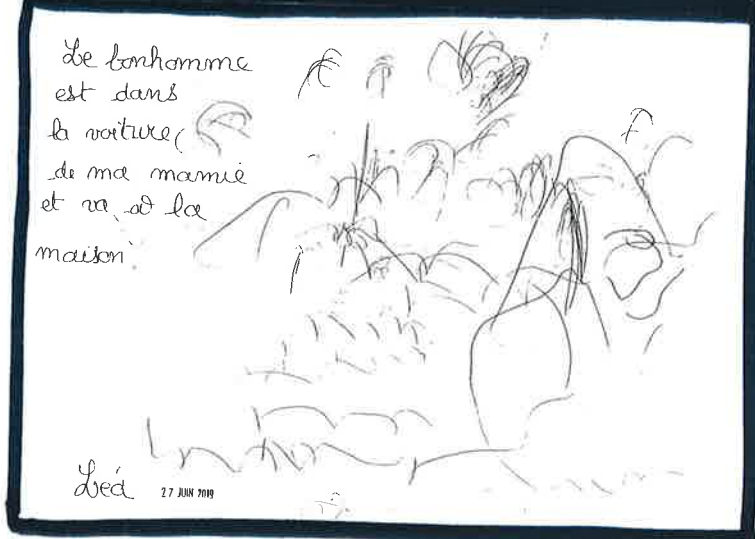 Le bonhomme
est dans
la voiture
de ma mamie
et va à la
maison
Léa
27 JUIN 2019